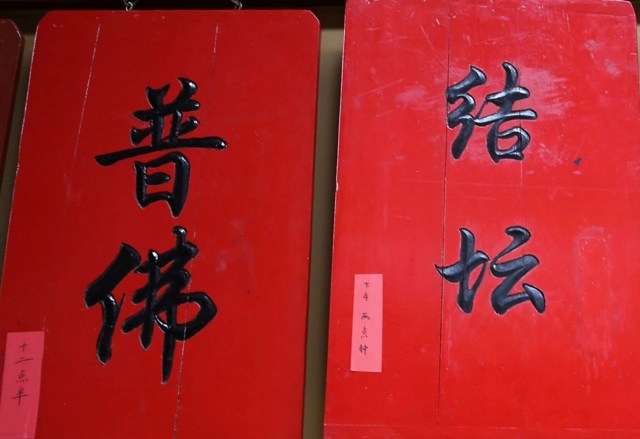 普佛
十二点半
结坛
下午两点钟